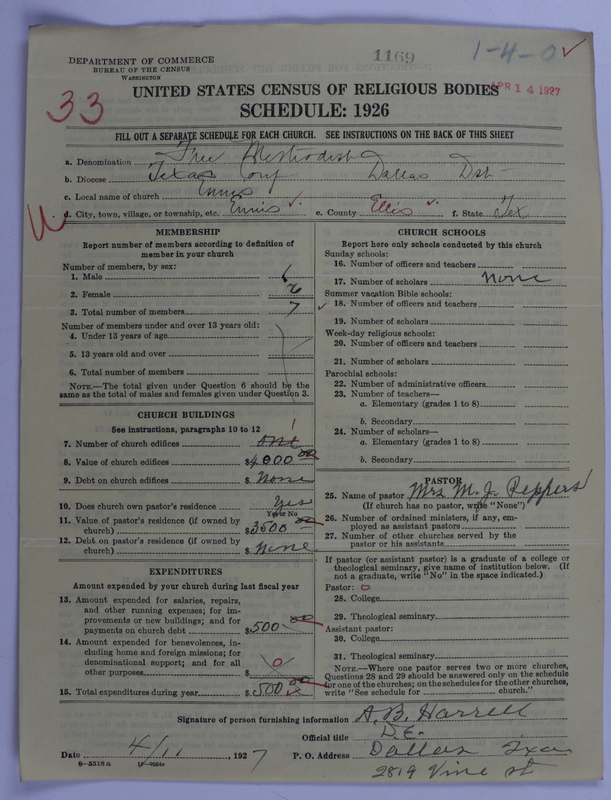 DEPARTMENT OF COMMERCE
BUREAU OF THE CENSUS
WASHINGTON
1169
1-4-0 ✓
APR 14 1927
33
UNITED STATES CENSUS OF RELIGIOUS BODIES
SCHEDULE: 1926
FILL OUT A SEPARATE SCHEDULE FOR EACH CHURCH. SEE INSTRUCTIONS ON THE BACK OF THIS SHEET
a. Denomination Free Methodist
b. Diocese Texas Conf Dallas Dst
c. Local name of church Ennis
d. City, town, village, or township, etc. Ennis ✓ e. County Ellis ✓ f. State Tex
MEMBERSHIP
Report number of members according to definition of
member in your church
Number of members, by sex:
1. Male 1
2. Female 6
3. Total number of members 7
Number of members under and over 13 years old:
4. Under 13 years of age
5. 13 years old and over
6. Total number of members
NOTE.—The total given under Question 6 should be the
same as the total of males and females given under Question 3.
CHURCH BUILDINGS
See instructions, paragraphs 10 to 12
7. Number of church edifices one 1
8. Value of church edifices $4000 00
9. Debt on church edifices $ None
10. Does church own pastor's residence Yes
Yes or No
11. Value of pastor's residence (if owned by
church) $3500 00
12. Debt on pastor's residence (if owned by
church) $ None
EXPENDITURES
Amount expended by your church during last fiscal year
13. Amount expended for salaries, repairs,
and other running expenses; for im-
provements or new buildings; and for
payments on church debt $500 00
14. Amount expended for benevolences, in-
cluding home and foreign missions; for
denominational support; and for all
other purposes $ 0
15. Total expenditures during year $500 00
CHURCH SCHOOLS
Report here only schools conducted by this church
Sunday schools:
16. Number of officers and teachers
17. Number of scholars None
Summer vacation Bible schools:
✓ 18. Number of officers and teachers
19. Number of scholars
Week-day religious schools:
20. Number of officers and teachers
21. Number of scholars
Parochial schools:
22. Number of administrative officers
23. Number of teachers—
a. Elementary (grades 1 to 8)
b. Secondary
24. Number of scholars—
a. Elementary (grades 1 to 8)
b. Secondary
PASTOR
25. Name of pastor Mrs. M. J. Peppers
(If church has no pastor, write "None")
26. Number of ordained ministers, if any, em-
ployed as assistant pastors
27. Number of other churches served by the
pastor or his assistants
If pastor (or assistant pastor) is a graduate of a college or
theological seminary, give name of institution below. (If
not a graduate, write "No" in the space indicated.)
Pastor: 0
28. College
29. Theological seminary
Assistant pastor:
30. College
31. Theological seminary
NOTE.—Where one pastor serves two or more churches,
Questions 28 and 29 should be answered only on the schedule
for one of the churches; on the schedules for the other churches,
write "See schedule for church."
Signature of person furnishing information A. B. Harrell
Official title D.E.
Date 4/11, 1927 P. O. Address Dallas Texas
8—5318 a
2819 Vine st